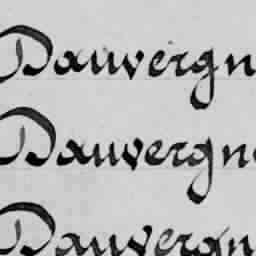 Dauvergn
Dauvergn
Dauvergn